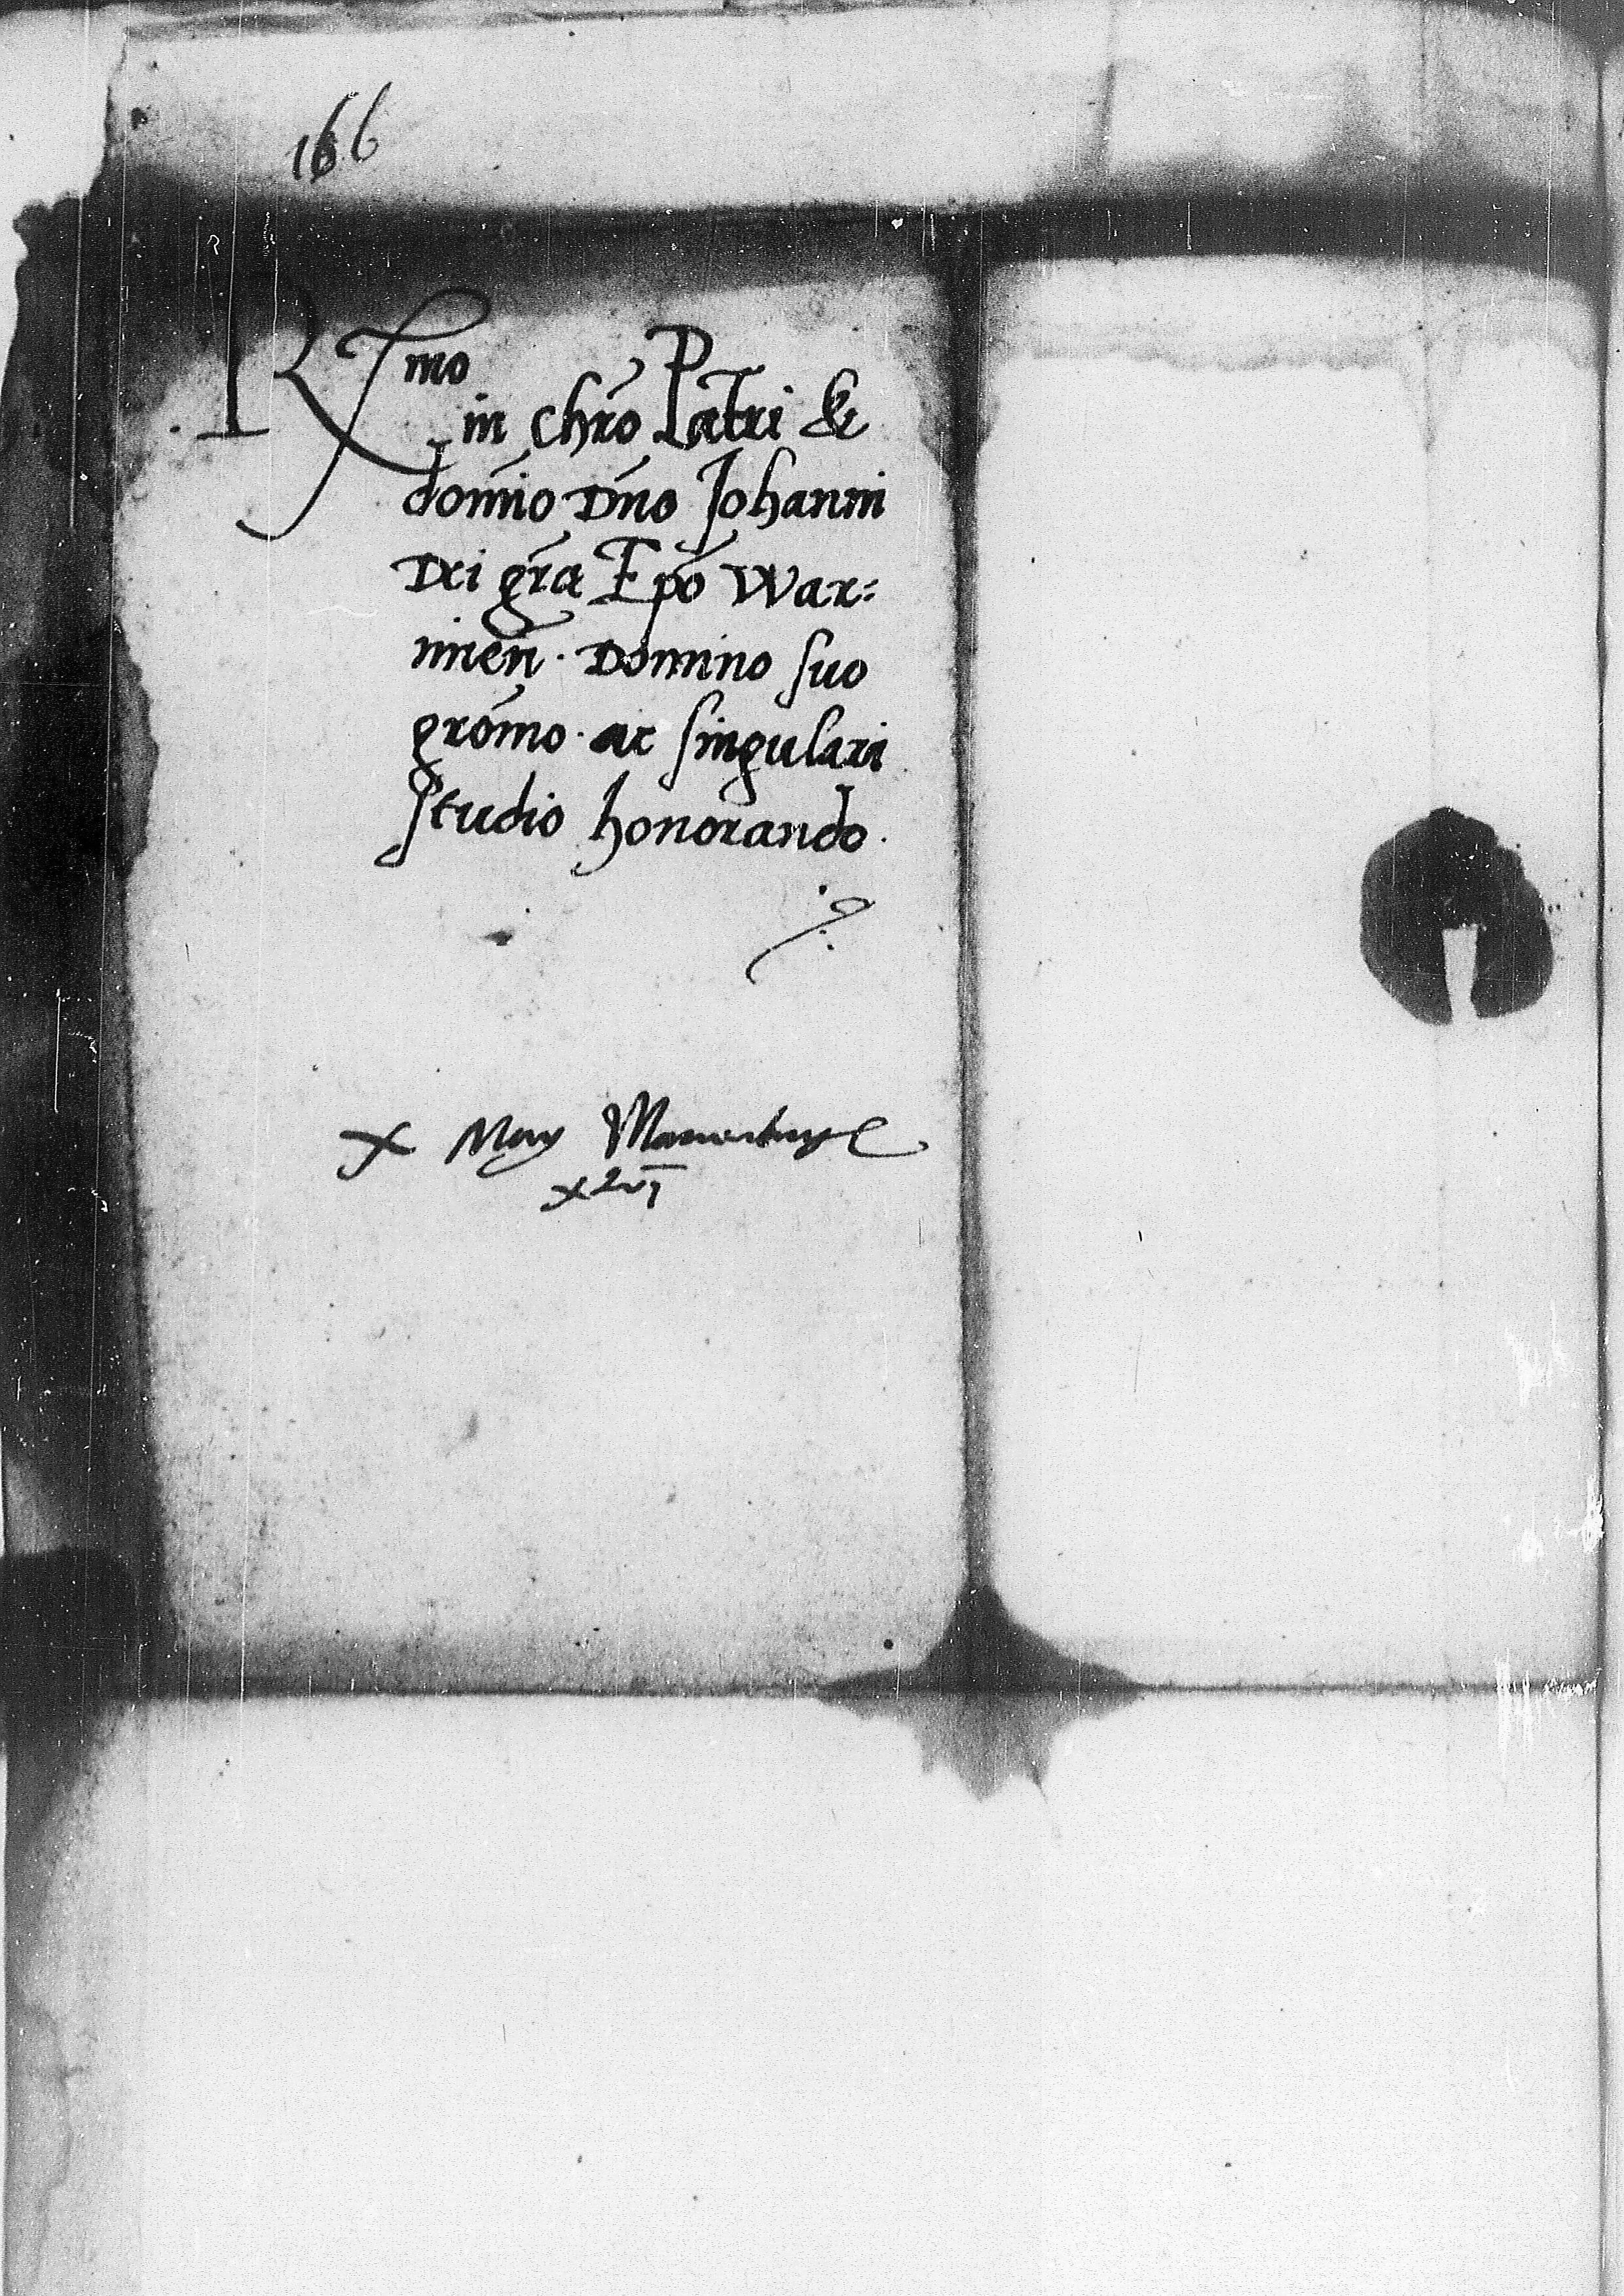 166
R^mo
in chro Patri &
domino Dno Johanni
Dei gra Epo War=
mien. Domino suo
gromo. ac singulari
studio honorando.
x May
xlvi